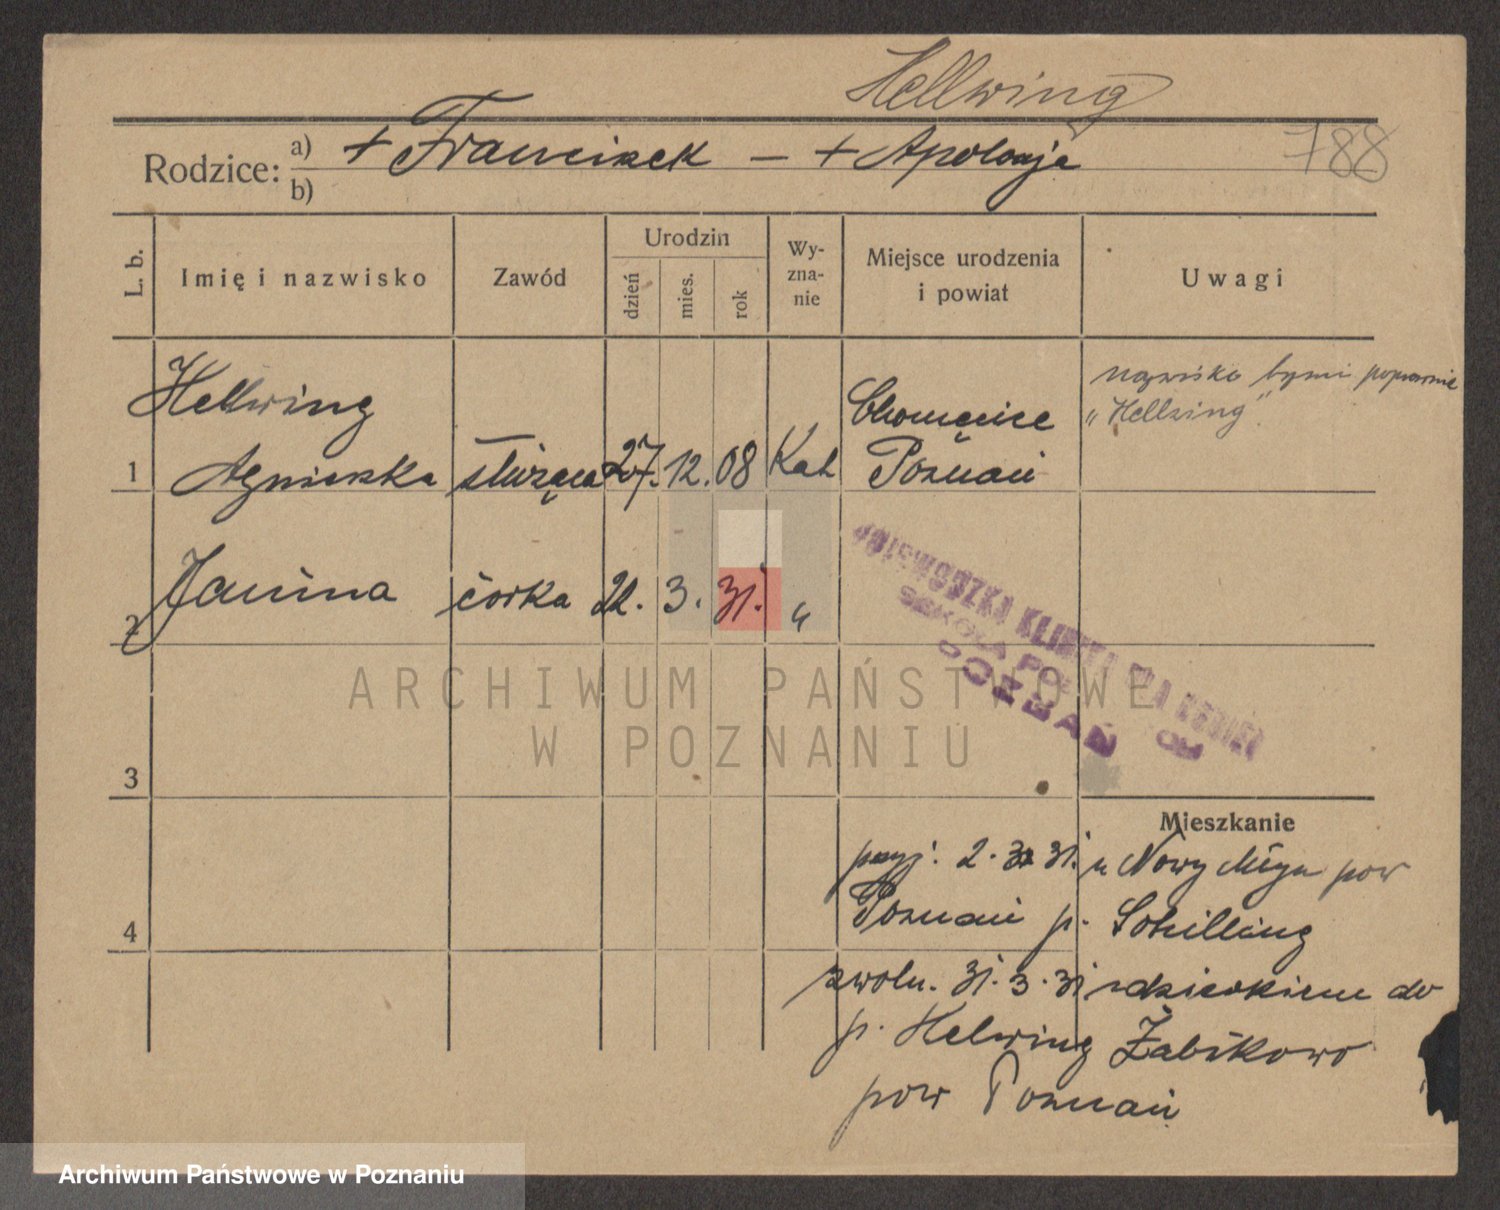 Hellwing
788
Rodzice: a) + Franciszek — + Apolonja
b)
L. b.
Imię i nazwisko
Zawód
Urodzin
dzień
mies.
rok
Wy-
zna-
nie
Miejsce urodzenia
i powiat
Uwagi
Hellwing
1 Agnieszka służąca 27. 12. 08 Kat
Chomęcice
Poznań
nazwisko brzmi poprawnie
„Hellzing"
2 Janina córka 22. 3. 31. „
WOJEWÓDZKA KLINIKA DLA KOBIET
SZKOŁA POŁ
POZNAŃ
3
4
Mieszkanie
przyj. 2. 31. Nowy Młyn pow
Poznań p. Schilling
zwoln. 31. 3. 31 z dzieckiem do
p. Helwing Żabikowo
pow Poznań
ARCHIWUM PAŃSTWOWE
W POZNANIU
Archiwum Państwowe w Poznaniu